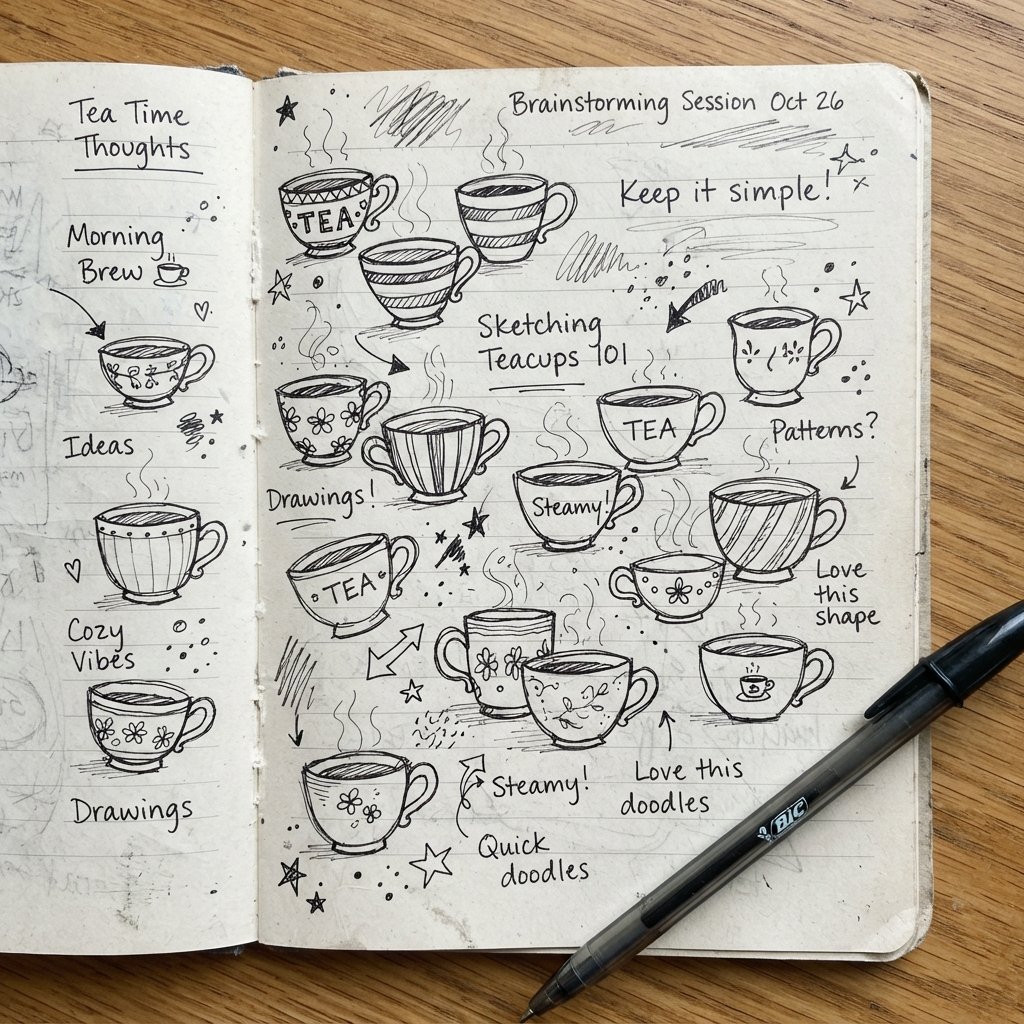 Tea Time
Thoughts
Morning
Brew
Ideas
Cozy
Vibes
Drawings
Brainstorming Session Oct 26
Keep it simple!
TEA
Sketching
Teacups 101
TEA
Patterns?
Drawings!
Steamy!
TEA
Love
this
shape
Steamy!
Love this
doodles
Quick
doodles
BIC